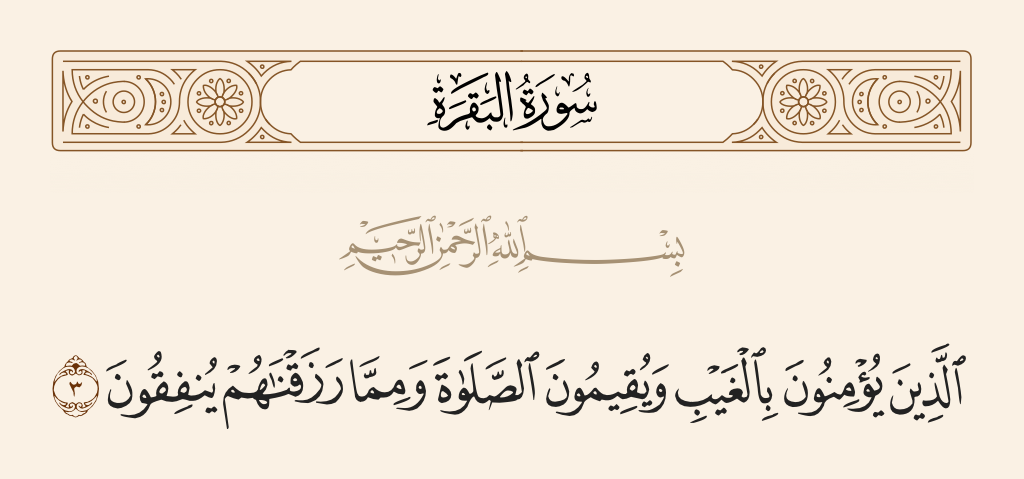 سُورَةُ الْبَقَرَةِ
بِسْمِ ٱللَّهِ ٱلرَّحْمَٰنِ ٱلرَّحِيمِ
ٱلَّذِينَ يُؤْمِنُونَ بِٱلْغَيْبِ وَيُقِيمُونَ ٱلصَّلَوٰةَ وَمِمَّا رَزَقْنَـٰهُمْ يُنفِقُونَ ٣